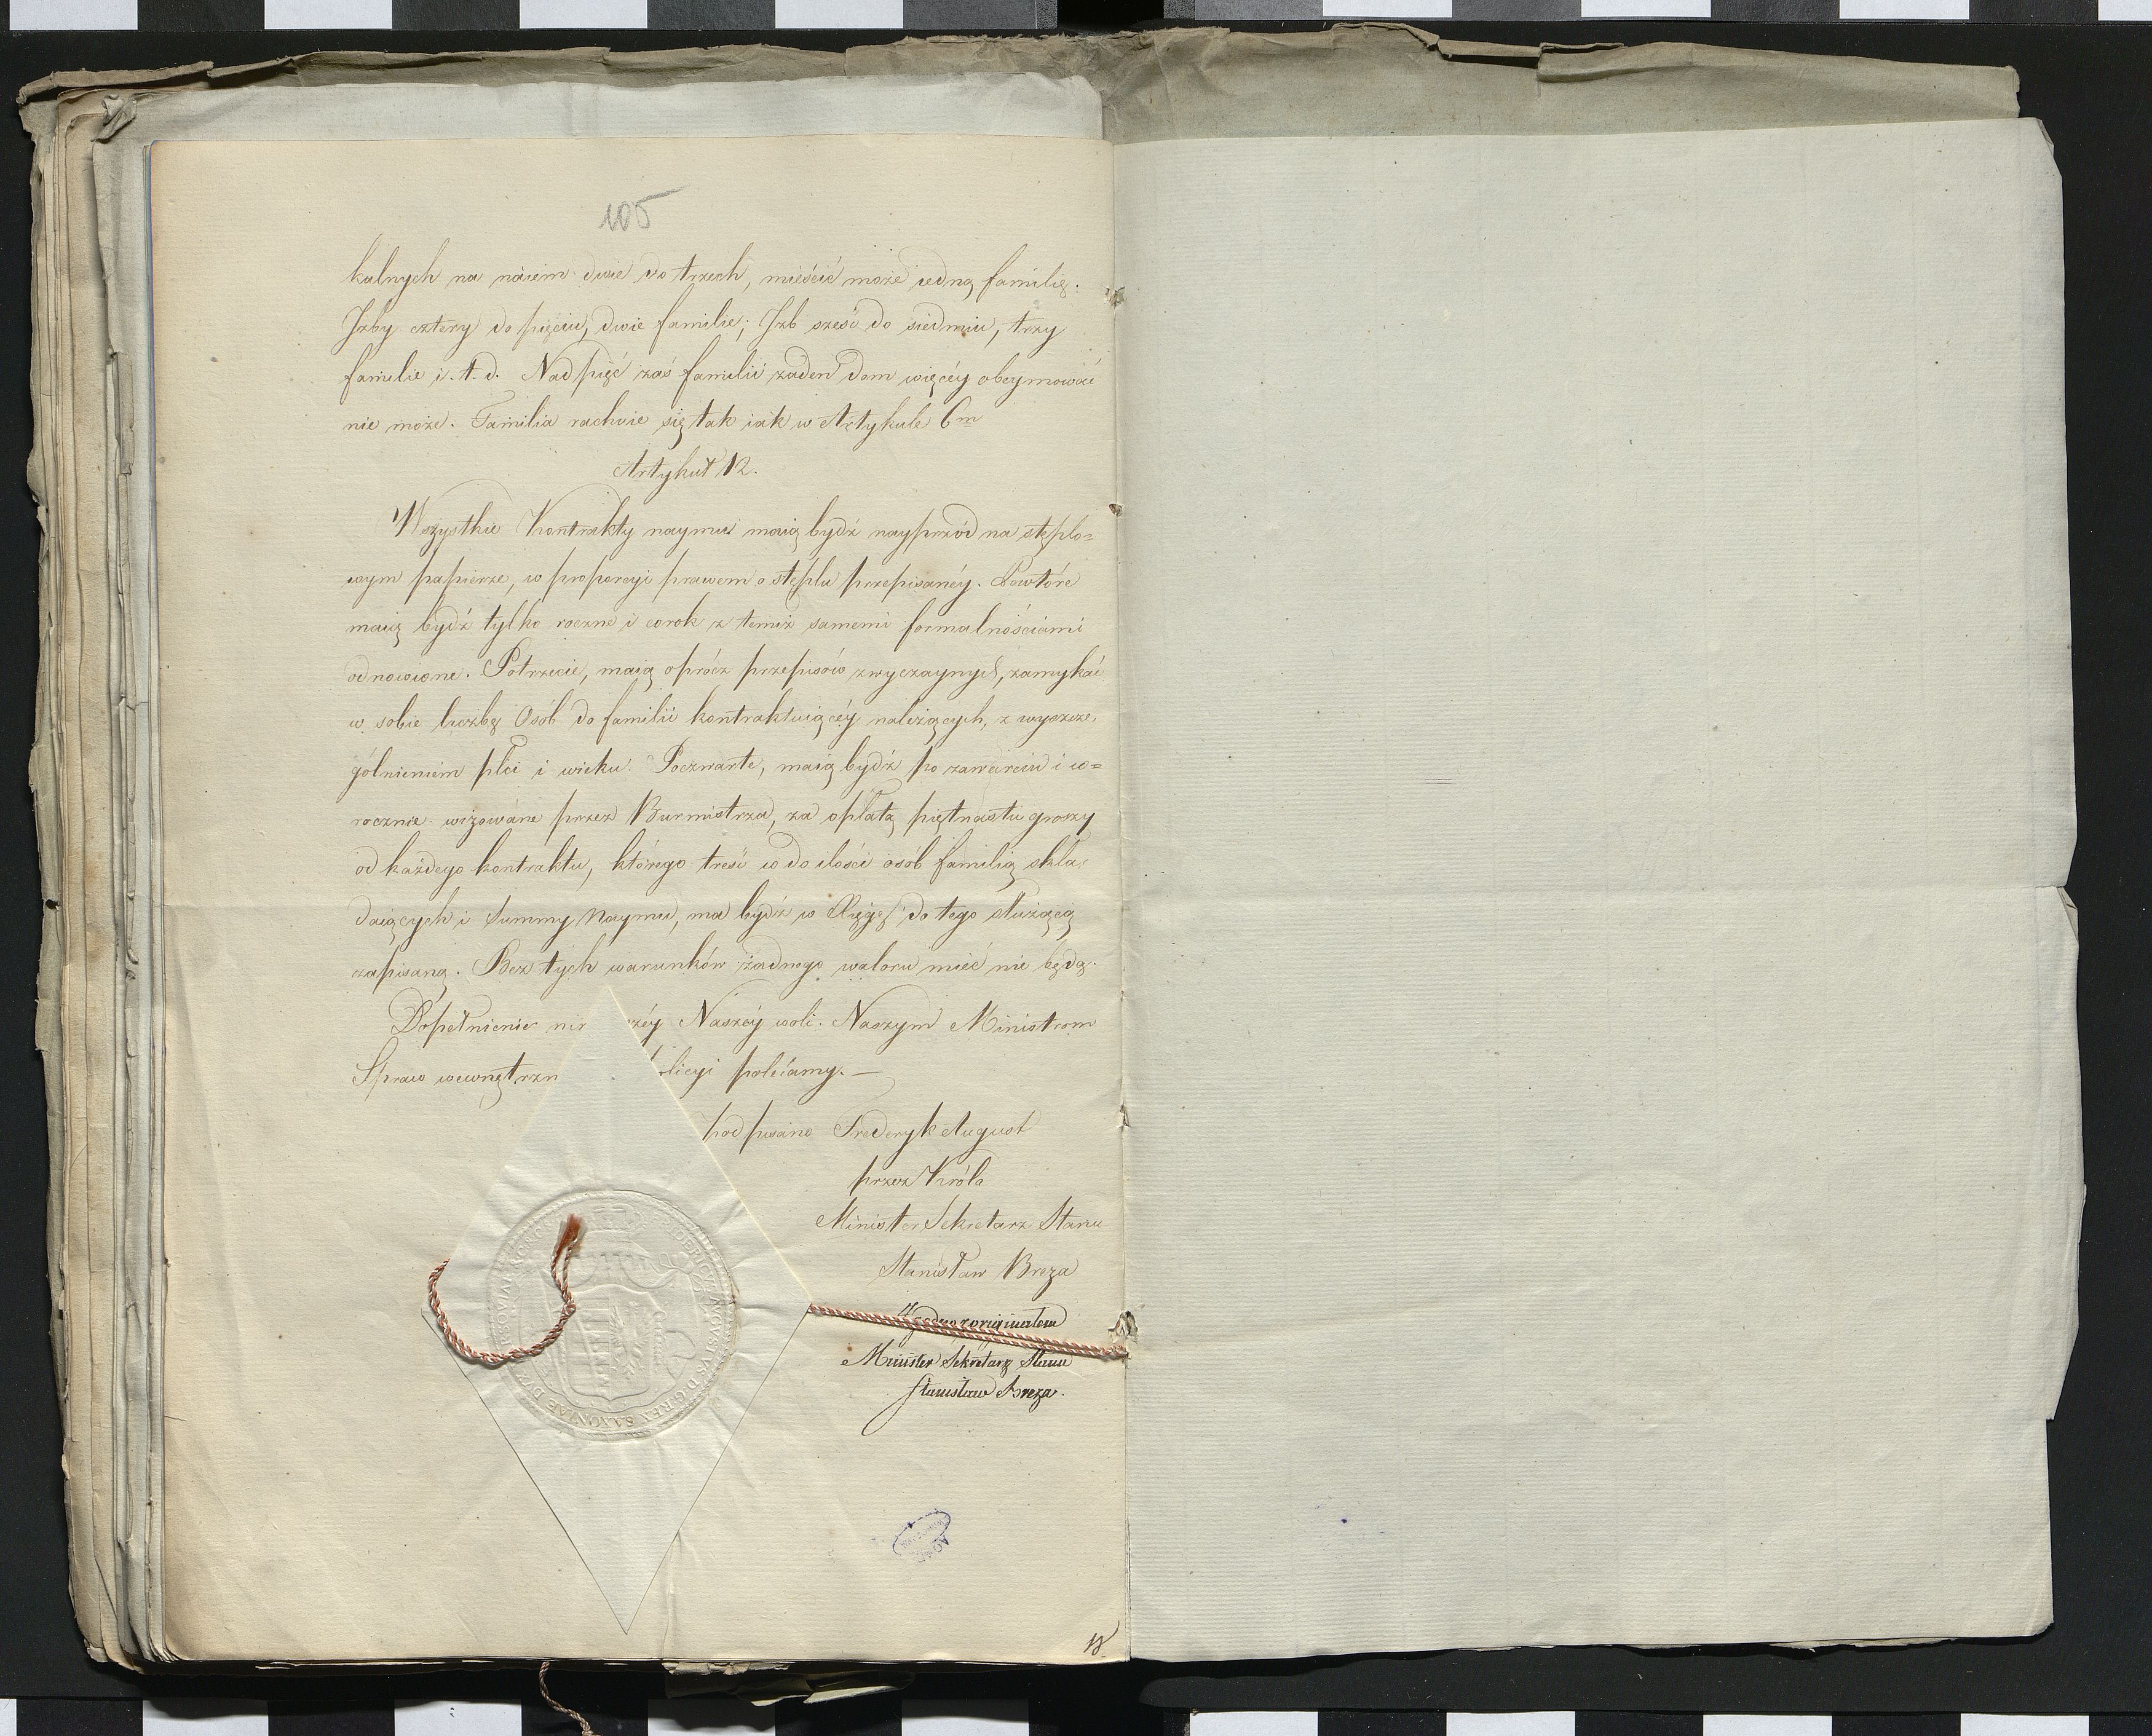 105
kalnych na náiem dwie do trzech, mieścić może iedną familię.
Izby cztery do pięciu, dwie familie; Izb sześć do siedmiu, trzy
familie i. t. d. Nad pięć zaś familii żaden dom więcéy obeymować
nie może. Familia rachuie się tak iak w Artykule 6m
Artykuł 12.
Wszystkie Kontrakty naymu maią bydź nayprzód na stęplo=
wym papierze, w proporcyi prawem o stęplu przepisanéy. Powtóre
maią bydź tylko roczne i corok z temiż samemi formalnościami
odnowione. Potrzecie, maią oprócz przepisów zwyczaynych, zamykać
w sobie liczbę Osób do familii kontraktuiącéy należących, z wyszcze.
gólnieniem płci i wieku. Poczwarte, maią bydź po zawarciu i co=
rocznie wizowane przez Burmistrza, za opłatą piętnastu groszy
od każdego kontraktu, którego treść co do ilości osób familią skła.
daiących i Summy Naymu, ma bydź w Xięgę do tego służącą
zapisaną. Bez tych warunków żadnego waloru mieć nie będą.
Dopełnienie ni széy Naszéy woli. Naszym Ministrom
Spraw wewnętrzn olicyi poleciamy. —
podpisano Frederyk August
przez Króla
Minister Sekretarz Stanu
Stanisław Breza
Zgodno z originałem
Minister Sekretarz Stanu
Stanisław Breza.
FRIDERICVS AVGVSTVS D. G. REX SAXONIAE DVX VARSOVIAE
AGAD
18